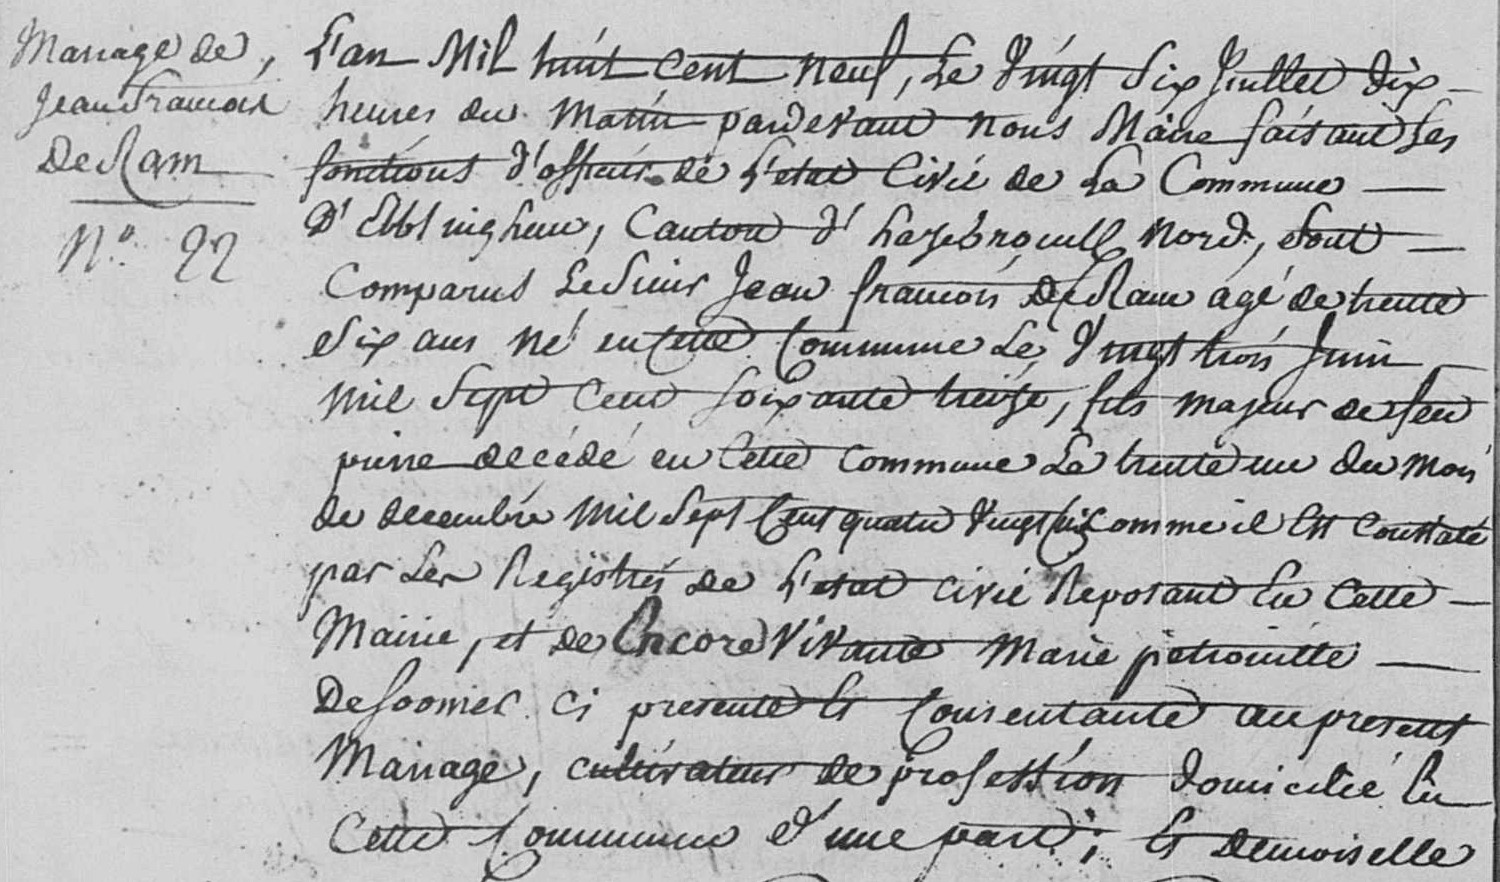 Mariage de
Jean francois
De Ram
N.º 22
L'an Mil huit cent neuf, Le Vingt Six Juillet dix
heures du Matin pardevant nous Maire faisant Les
fonctions d'officier de L'etat Civil de La Commune
D'Ebblinghem, Canton d'hazebrouck Nord, Sont
Comparus Le Sieur Jean francois De Ram agé de trente
Six ans né en cette Commune Le Vingt trois Juin
Mil Sept Cent Soixante treize, fils majeur de feu
pierre decédé en Cette commune Le trente un du mois
de decembre Mil Sept Cent quatre Vingt comme il Est Constaté
par Les Registres de L'etat civil Reposant En Cette
Mairie, et de Encore Vivante Marie petronille
De Soomer ci presente Et Consentante au present
Mariage, cultivateur de profession domicilié En
Cette Commune d'une part; Et demoiselle